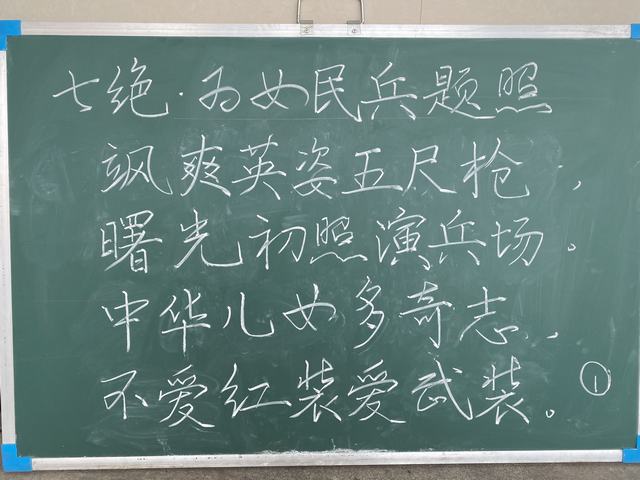 七绝·为女民兵题照
飒爽英姿五尺枪,
曙光初照演兵场。
中华儿女多奇志,
不爱红装爱武装。 ①